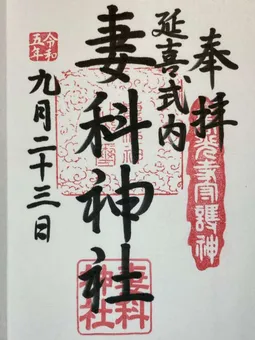 奉拝
延喜式内
妻科神社
令和
五年
九月二十三日
妻科
神社